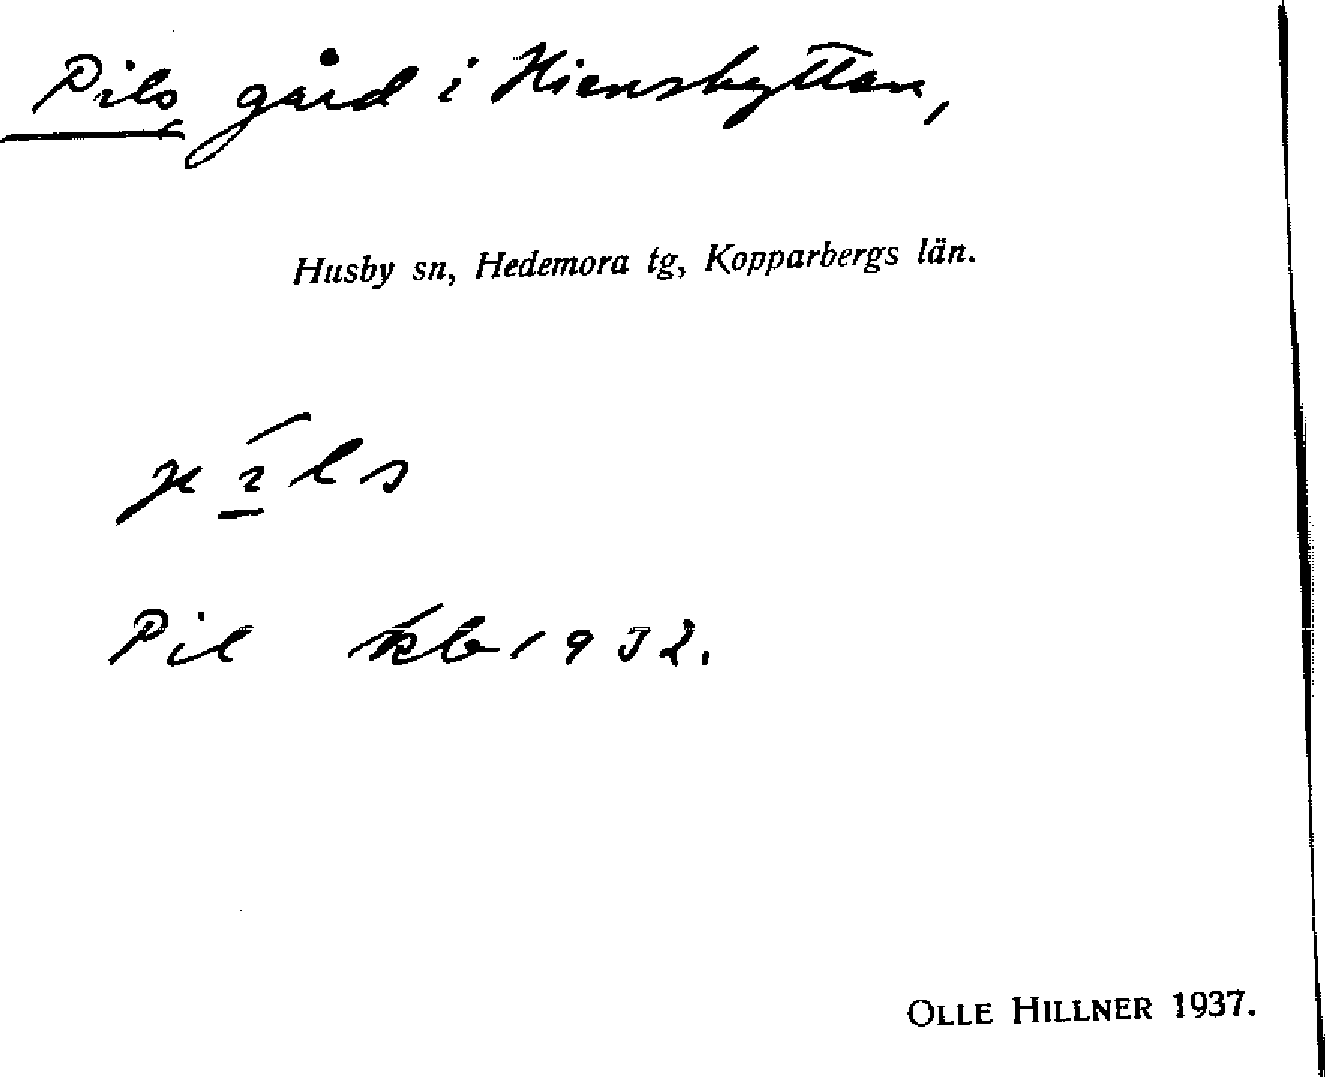 Pils, gård i Hienshyttan,
Husby sn, Hedemora tg, Kopparbergs län.
Pil kb 1932.
OLLE HILLNER 1937.